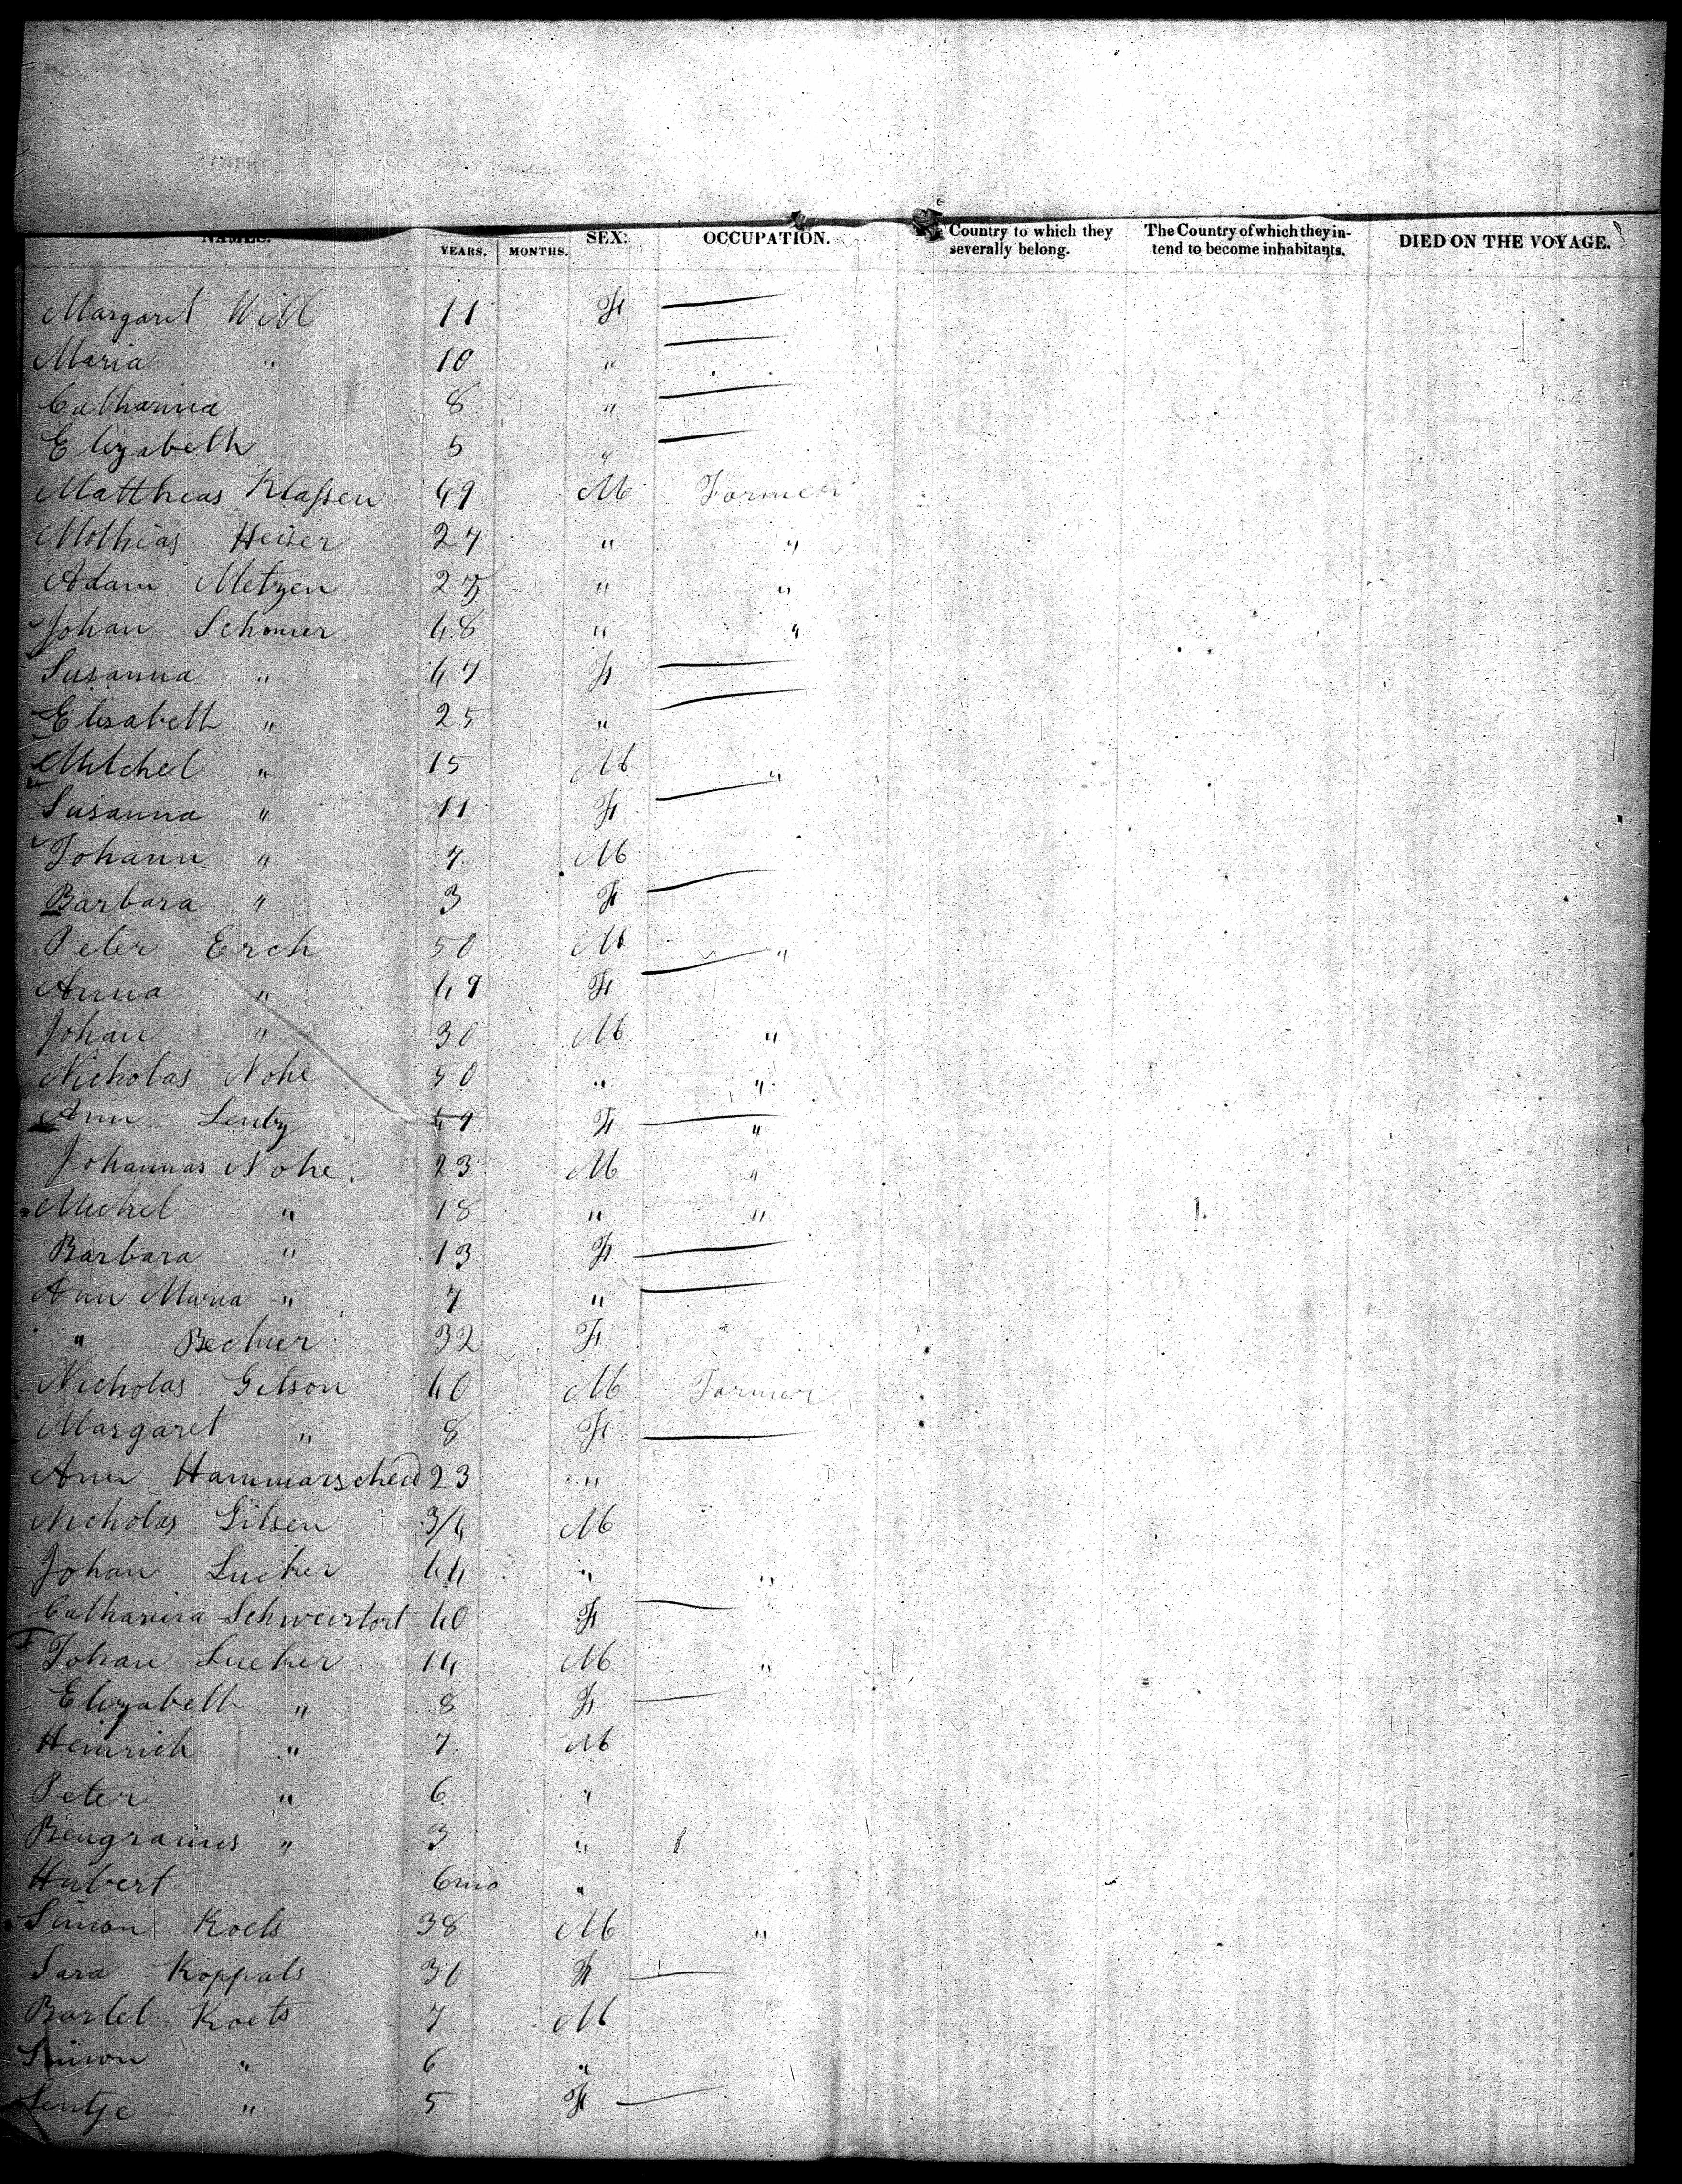 NAMES. YEARS. MONTHS. SEX: OCCUPATION. Country to which they severally belong. The Country of which they intend to become inhabitants. DIED ON THE VOYAGE.
Margaret Will 11 F —
Maria " 10 " —
Catharina 8 " —
Elizabeth 5 " —
Matthias Klassen 49 M Farmer
Mathias Heiser 27 " "
Adam Metzen 25 " "
Johan Schomer 48 " "
Susanna " 47 F —
Elisabeth " 25 " —
Mitchel " 15 M "
Susanna " 11 F —
Johann " 7 M
Barbara " 3 F —
Peter Erch 50 M "
Anna " 49 F —
Johan " 30 M "
Nicholas Nohe 50 " "
Ann Lentz 49 F — "
Johannas Nohe. 23 M "
Michel " 18 " "
Barbara " 13 F —
Ann Maria " 7 " —
" Becher 32 F
Nicholas Gilson 40 M Farmer
Margaret " 8 F —
Ann Hammarscheid 23 "
Nicholas Gilsen 3/4 M
Johan Lucker 44 " "
Catharina Schweistort 40 F —
Johan Lucker 14 M "
Elizabeth " 8 F —
Heinrich " 7 M
Peter " 6 "
" 3 "
Hubert 6mo "
Simon Koets 38 M "
Sara Koppals 30 F —
Bartel Koets 7 M
Simon " 6 "
Lentje " 5 F —